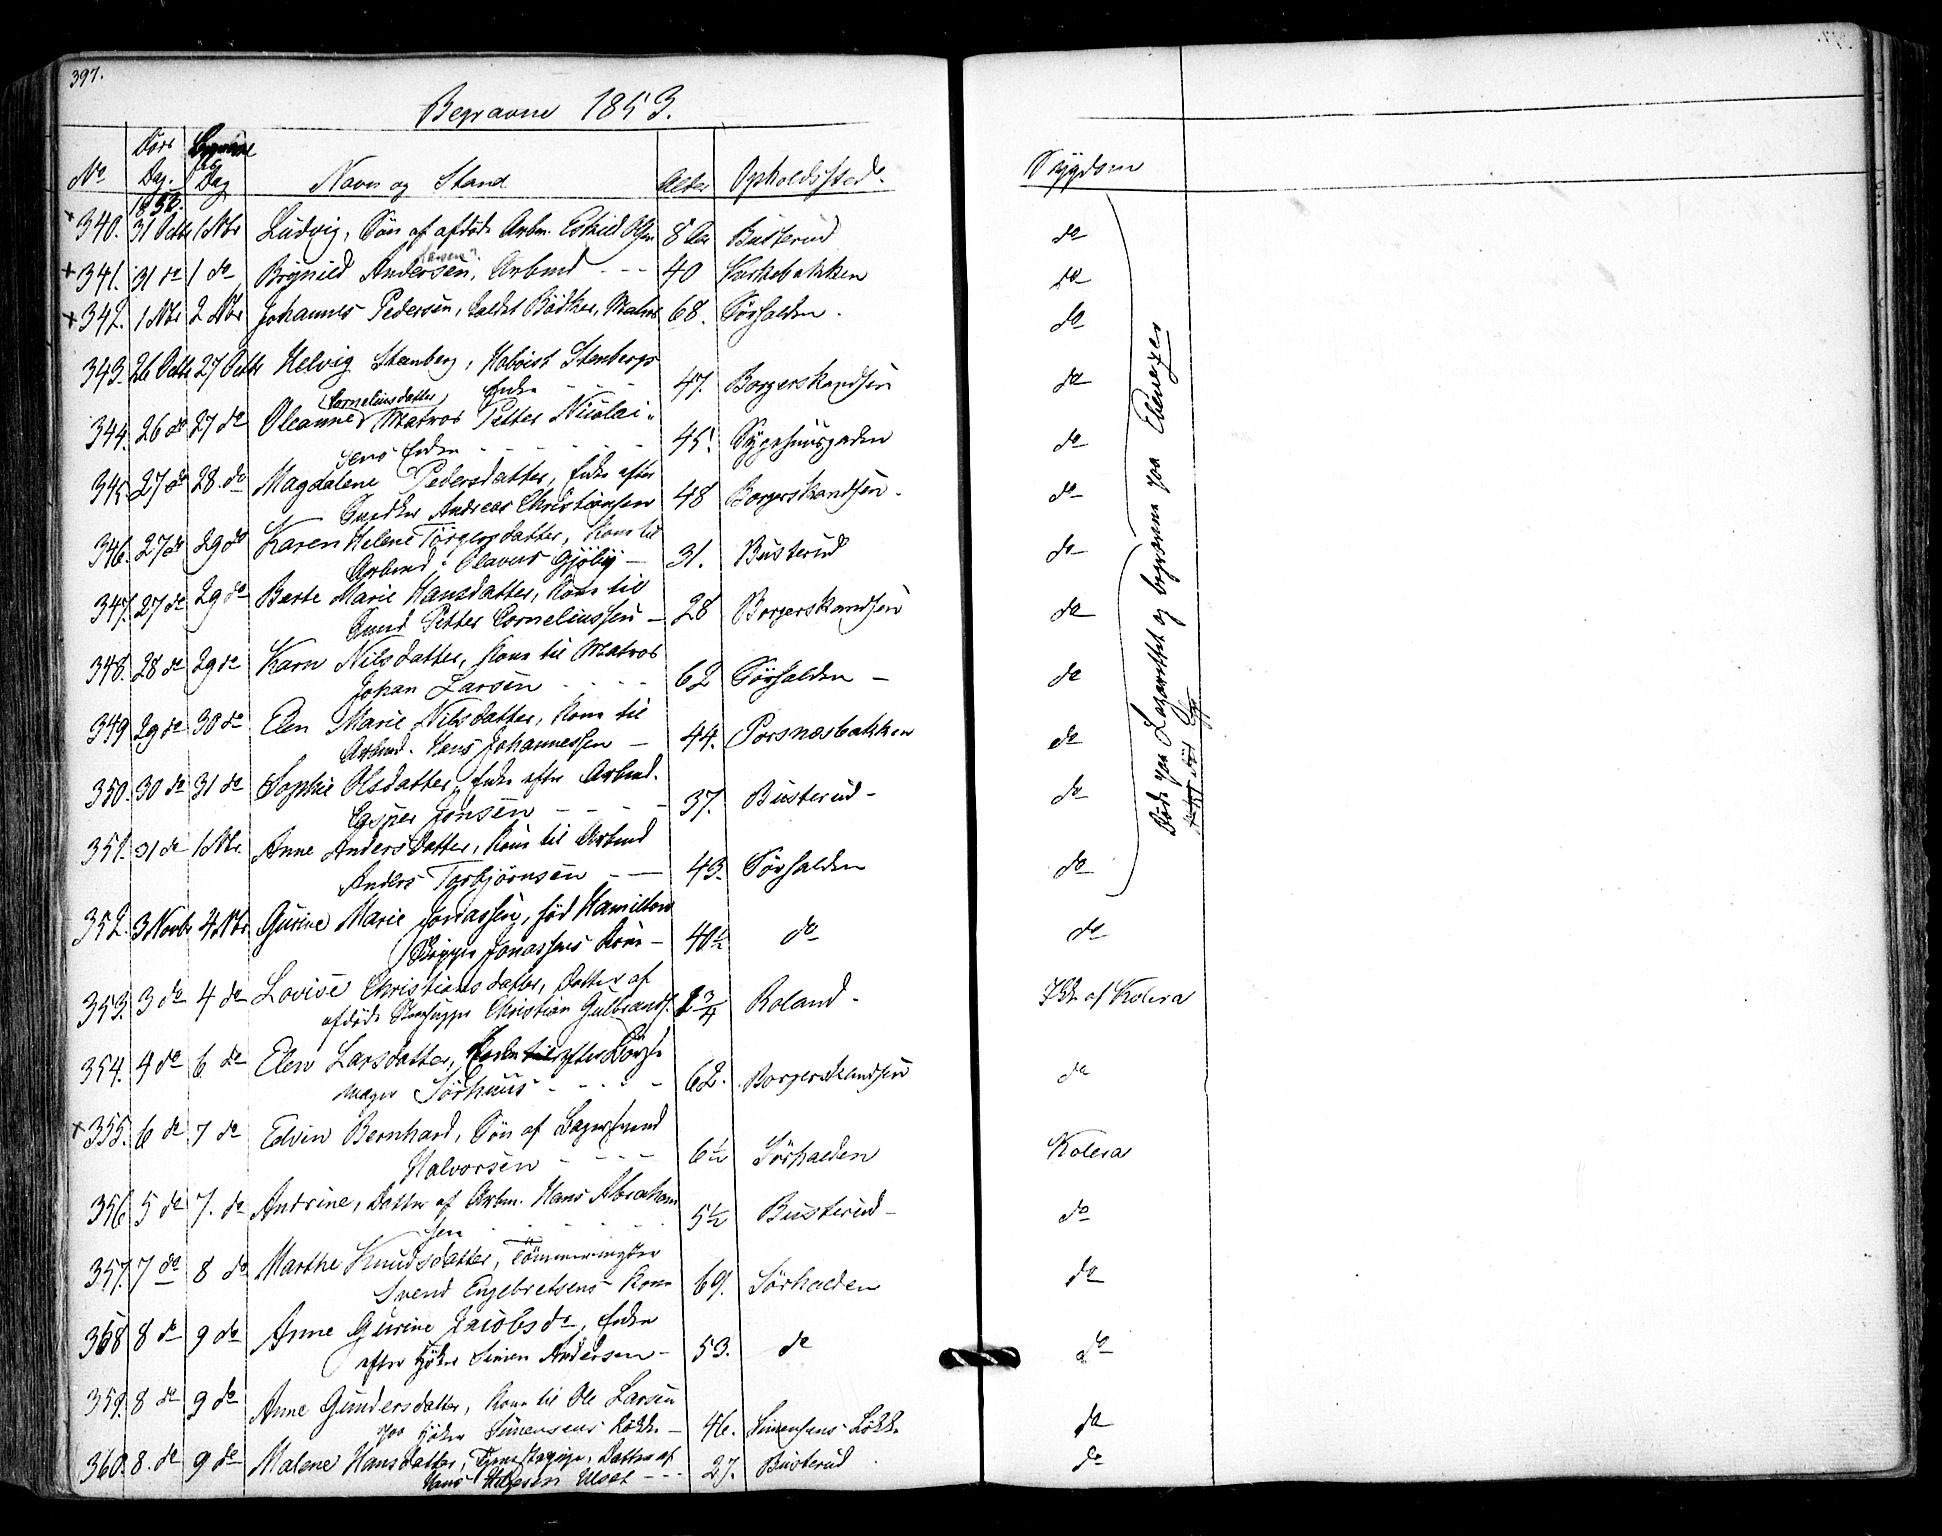 397.
Begravne 1853.
No Døds Dag. Begravelse Dag Navn og Stand Alder Opholdssted. Sygdom
1853.
+ 340. 31 Octb 1 Nbr Ludvig, Søn af afdøde Arbm. Eskild Olsen 8 Aar Busterud do
+ 341. 31 do 1 do Brynild Andersen, Arbmd - - - 40 Kirkebakken do
+ 342. 1 Nbr 2 Nbr Johannes Pedersen, kaldet Bödker, Matros 68. Sørhalden. do
343. 26 Octb 27 Octb Helvig Stenberg, Stenbergs
Enke - - - 47. Borgerskandsen do
344. 26 do 27 do Oleanne Corneliusdatter, Matros Petter Nicolai-
sens Enke - - - - 45. Sygehuusgaden do
345. 27 do 28. do Magdalene Pedersdatter, Enke efter
Snedker Andreas Christiansen 48 Borgerskandsen. do
346. 27 do 29 do Karen Helene Törgersdatter, Kone til
Arbmd. Olavus Gjölby - 31. Busterud do
347. 27 do 29 do Berte Marie Hansdatter, Kone til
Petter Corneliussen - 28 Borgerskandsen do
348. 28 do 29 do Karn Nilsdatter, Kone til Matros
Johan Larsen - - - - 62 Sørhalden - do
349 29 do 30 do Elen Marie Nilsdatter, Kone til
Arbmd. Hans Johannessen - 44. Porsnæsbakken do
350. 30 do 31 do Sophie Olsdatter, Enke efter Arbmd.
Casper Jonsen - - - - 37. Busterud - do
351. 31 do 1 Nbr. Anne Andersdatter, Kone til Arbmd
Anders Torbjörnsen - - 43. Sørhalden do
Døde paa Lazarettet og begravne paa Ebenezer
352. 3 Novbr 4. Nbr. Gurine Marie Jonassen, fød Hamilton
Skipper Jonassens Kone - 40½ do do
353. 3 do 4 do Lovise Christiansdatter, Datter af
afdøde Christian Gulbrands. 2¾ Roland - af Kolera
354. 4 do 6 do Elen Larsdatter, Enke efter
mager Sörhuus - - - - 62. Borgerskandsen do
+ 355. 6 do 7 do Edvin Bernhard, Søn af
Halvorsen - - - - 6½ Sörhalden Kolera
356. 5 do 7. do Andrine, Datter af Arbm. Hans Abraham
sen - - - - 5½ Busterud - do
357. 7 do 8 do Marthe Knudsdatter,
Svend Engebretsens Kone 69. Sörhalden do
358 8 do 9 do Anne Gurine Jacobsdr, Enke
efter Höker Simen Andersen - 53. do do
359. 8 do 9 do Anne Gundersdatter, Kone til Ole Larsen
paa Höker Simensens Løkke - 46. Simensens Løkke do
360. 8. do 9 do Malene Hansdatter, Tjenestepige, Datter af
Hans Ulset - - - 27. Busterud do